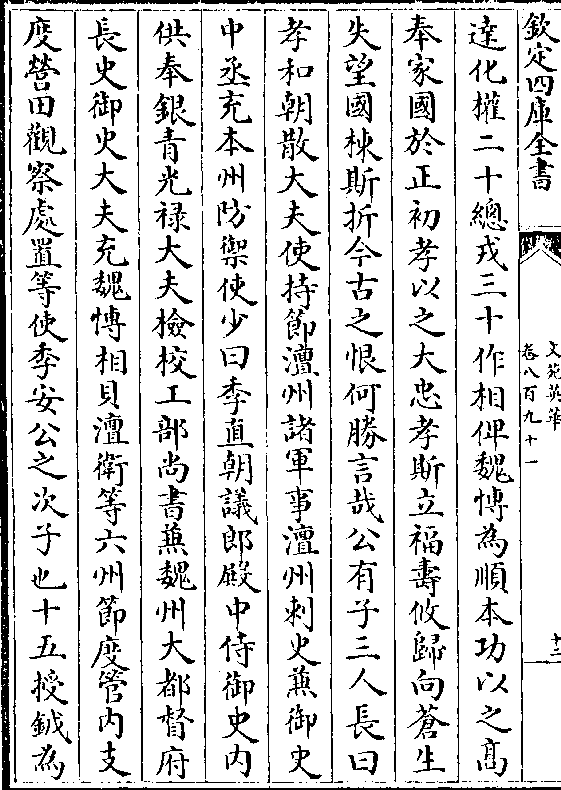 欽定四庫全書
文苑英華
卷八百九十一
十二
達化權二十總戎三十作相俾魏愽為順本功以之髙
奉家國於正初孝以之大忠孝斯立福壽攸歸向蒼生
失望國棟斯折今古之恨何勝言哉公有子三人長曰
孝和朝散大夫使持節澶州諸軍事澶州刺史蕪御史
中丞充本州防禦使少曰季直朝議郎殿中侍御史内
供奉銀青光禄大夫檢校工部尚書蕪魏州大都督府
長史御史大夫充魏愽相貝澶衛等六州節度管内支
度營田觀察處置等使季安公之次子也十五授鉞為